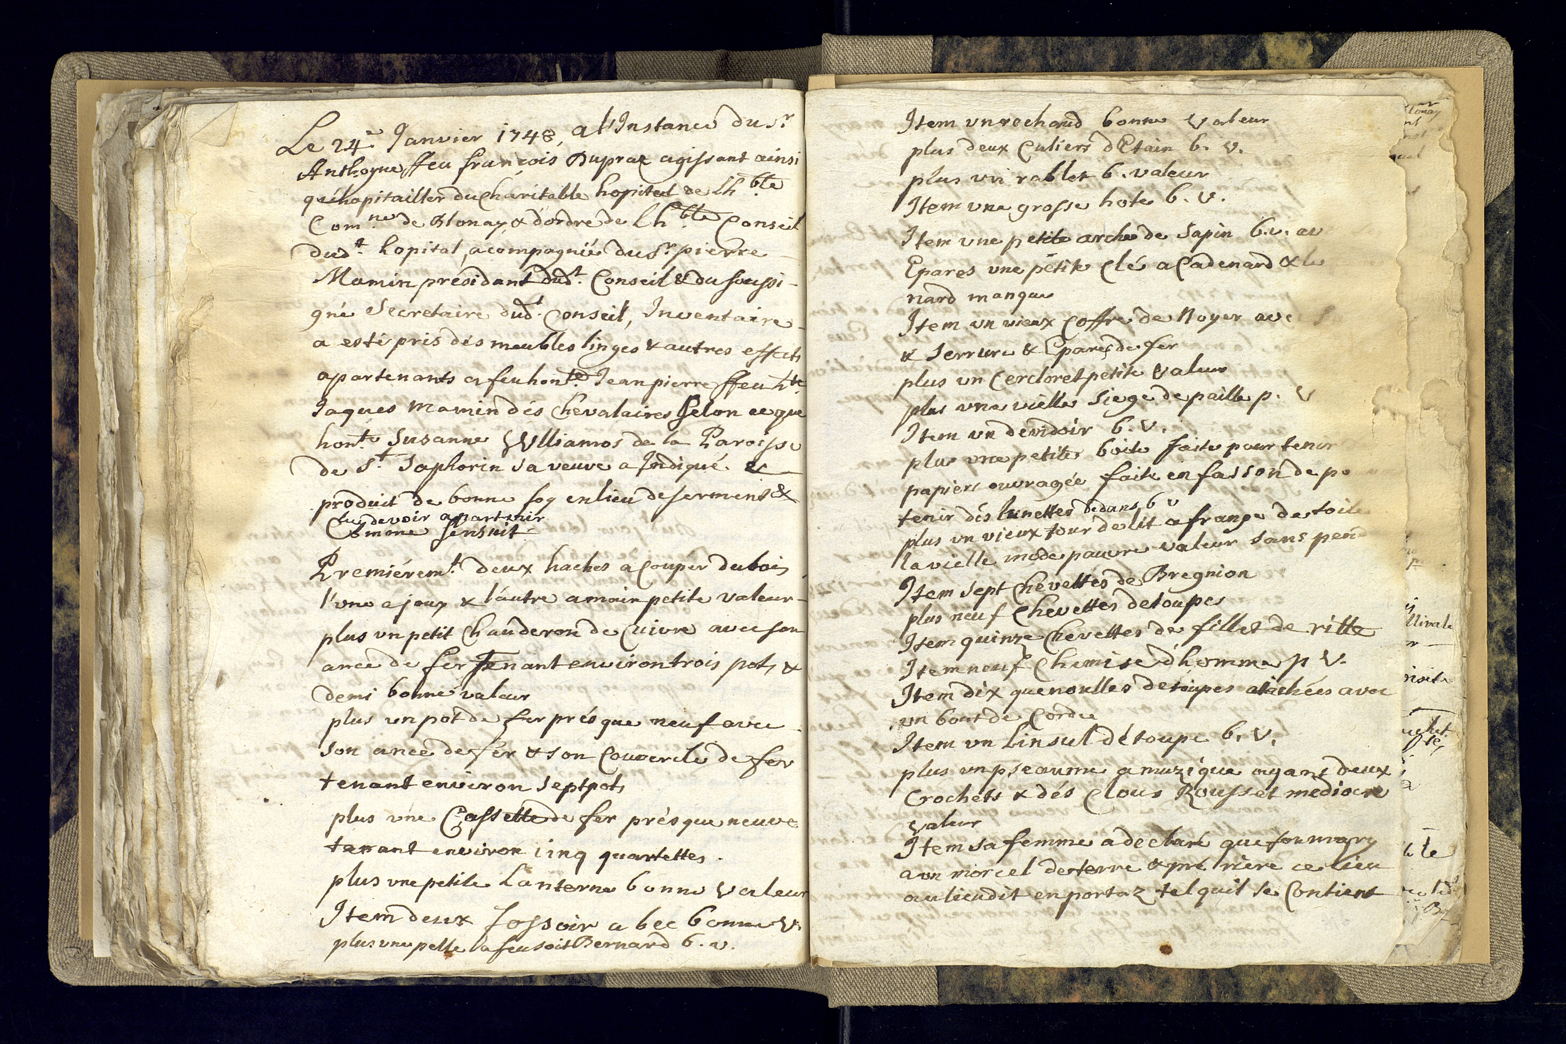 Le 24e Janvier 1748, a l'Instance du Sr
Anthoyne ffeu françois Dupraz agissant ainsi
qu'hopitaillier du Charitable hopital de Lhble
Comne de Blonay & d'ordre de Lhble Conseil
dudt hopital, acompagniée du Sr pierre
Mamin présidant dudt Conseil & du soussi-
gné Secretaire dudt Conseil, Inventaire
a esté pris des meubles linges & autres effects
apartenants a feu honte Jean pierre ffeu hte
Jaques Mamin des Chevalaires Selon ce que
honte Susanne Wlliamos de la Paroisse
de St Saphorin sa veuve a Indiqué &
produit de bonne foy en lieu de serment &
lui devoir apartenir
Comme sensuit
Premiéremt deux haches a Couper du bois
l'une a jouy & l'autre a main petite valeur
plus un petit Chauderon de Cuivre avec son
ance de fer tenant environ trois pots &
demi bonne valeur
plus un pot de fer présque neuf avec
son ance de fer & son Couvercle de fer
tenant environ Sept pots
plus une Cassette de fer présque neuve
tenant environ cinq quartettes.
plus une petite Lanterne bonne valeur
Item deux fossoir a bec bonne V
plus une pelle a feu soit Bernard b. v.
Item un rechaud bonne valeur
plus deux Culiers d'Etain b. v.
plus un rablet b. valeur
Item une grosse hote b. v.
Item une petite arche de Sapin b. v. av
Epares une petite Clé a Cadenard & le
nard manque
Item un vieux Coffre de Noyer ave
& Serrure & Epares de fer
plus un Cercloret petite valeur
plus une vielle Siege de paille p. V
Item un dévidoir b. v.
plus une petite boite faite pour tenir
papiers ouvragée faite en fasson de po
tenir des lunettes dedans b v
plus un vieux tour de lit a frange de toile
la vielle mode pauvre valeur sans pen
Item Sept Chevettes de Bregnion
plus neuf Chevettes detoupes
Item quinze Chevettes de fillet de ritte
Item neuf Chemise d'homme p V.
Item dix quenoulles detoupes atachées avec
un bout de Corde
Item un Linsul détoupe b. v.
plus un pseaume a muzique ayant deux
Crochets & des Clous Rousset mediocre
valeur
Item sa femme a déclaré que son mary
a un morcel de terre & pré riere ce lieu
au lieu dit en portaz tel quil se Contient